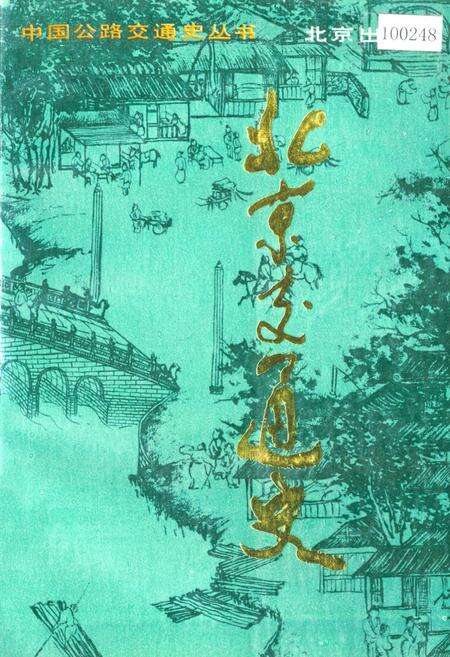 中国公路交通史丛书
北京出
100248
北京交通史